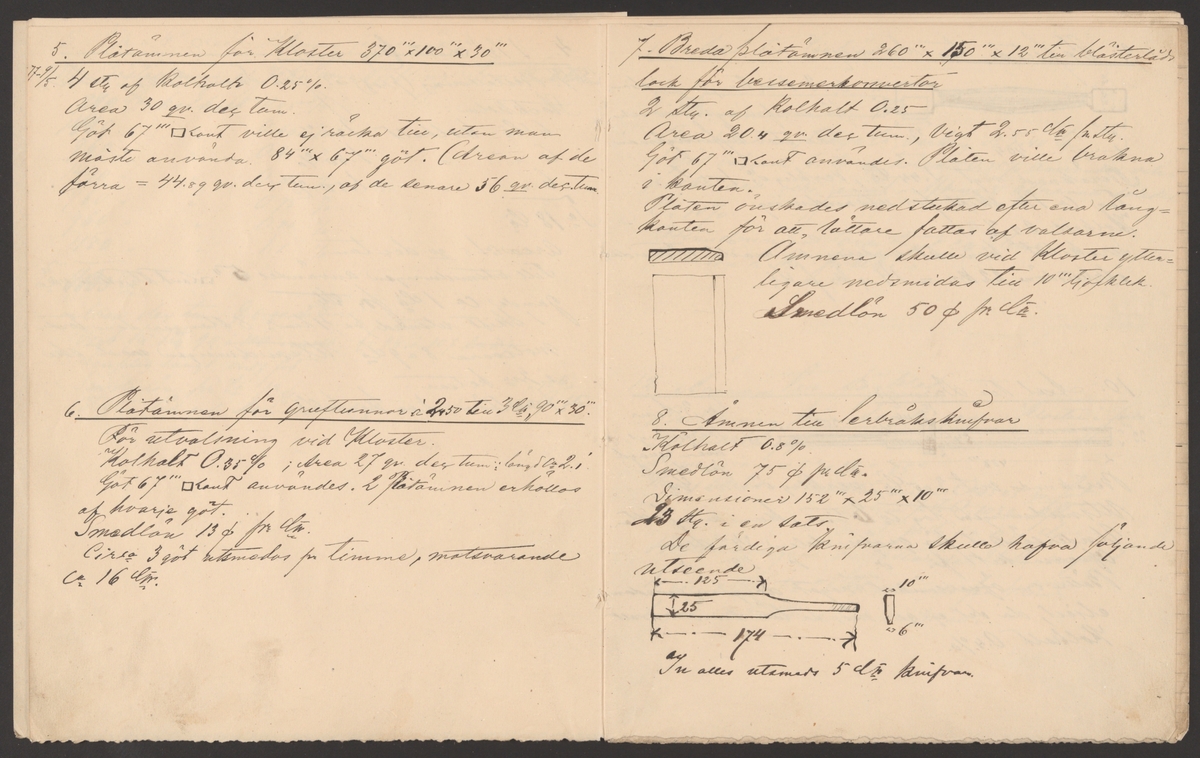 5. Plåtämnen för Kloster 370‴ x 100‴ x 30‴
4 st. af kolhalt 0.25%.
Area 30 qv. dec. tum.
Göt 67‴ □kant ville ej räcka till, utan man
måste använda 84‴ x 67‴ göt. (Arean af de
förra = 44.89 qv. dec. tum., af de senare 56 qv. dec. tum
6. Plåtämnen för gruftunnor à 2.50 till 3 Ctr, 90‴ x 30‴.
För utvalsning vid Kloster.
Kolhalt 0.35% ; Area 27 qv. dec. tum; längd ca 2.1'
Göt 67‴ □kant användes. 2 Plåtämnen erhöllos
af hvarje göt.
Smedlön 13 ⌀ pr Ctr.
Circa 3 göt utsmides pr timme, motsvarande
ca 16 Ctr.
7. Breda plåtämnen 260‴ x 150‴ x 12‴ till blästerlåds
lock för bessemerkonvertor
2 st. af kolhalt 0.25
Area 20.4 qv. dec. tum., vigt 2.55 Ctr pr st.
Göt 67‴ □kant användes. Plåten ville bräkna
i kanten.
Plåten önskades nedstukad efter ena lång=
kanten för att lättare fattas af valsarne.
Ämnena skulle vid Kloster ytter=
ligare nedsmidas till 10‴ tjocklek.
Smedlön 50 ⌀ pr Ctr.
8. Ämnen till Verbråksknifvar
Kolhalt 0.8%
Smedlön 75 ⌀ pr Ctr.
Dimensioner 152‴ x 25‴ x 10‴
23 st. i en sats.
De färdiga knifvarna skulle hafva följande
utseende
125
10‴
25
6‴
174
In alles utsmeds 5 Ctr knifvar.